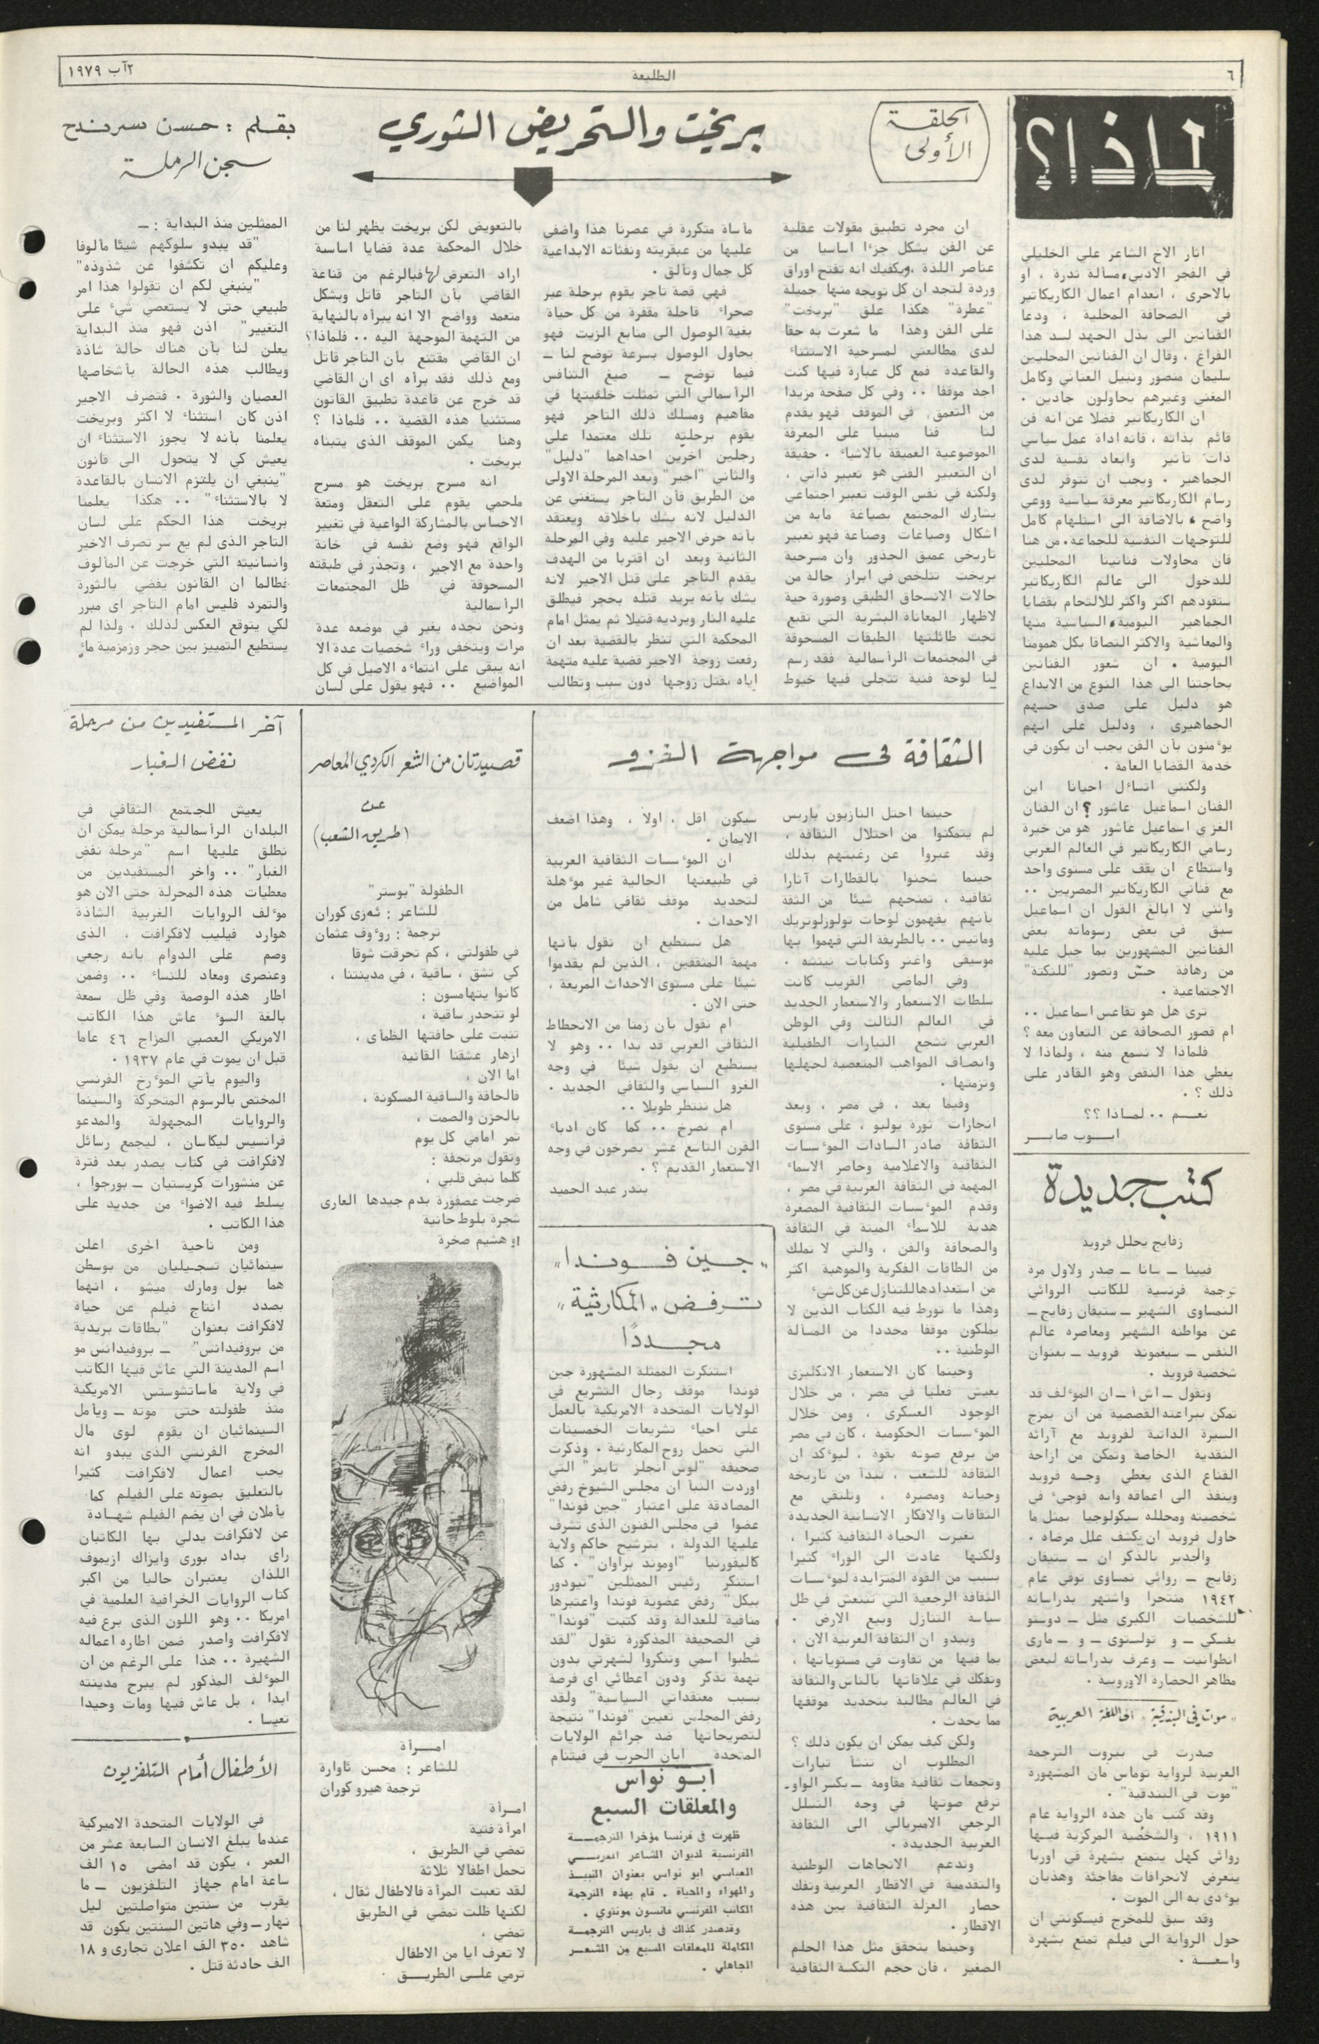 ٦
الطليعة
٢ آب ١٩٧٩
لماذا؟
اثار الاخ الشاعر علي الخليلي
في الفجر الادبي، مسألة ندرة ، او
بالاحرى ، انعدام اعمال الكاريكاتير
في الصحافة المحلية ، ودعا
الفنانين الى بذل الجهد لسد هذا
الفراغ ، وقال ان الفنانين المحليين
سليمان منصور ونبيل العناني وكامل
المغني وغيرهم يحاولون جادين .
ان الكاريكاتير فضلا عن انه فن
قائم بذاته ، فانه اداة عمل سياسي
ذات تأثير وابعاد نفسية لدى
الجماهير . ويجب ان تتوفر لدى
رسام الكاريكاتير معرفة سياسية ووعي
واضح ، بالاضافة الى استلهام كامل
للتوجهات النفسية للجماعة . من هنا
فان محاولات فنانينا المحليين
للدخول الى عالم الكاريكاتير
ستقودهم اكثر واكثر للالتحام بقضايا
الجماهير اليومية، السياسية منها
والمعاشية والاكثر التصاقا بكل همومنا
اليومية . ان شعور الفنانين
بحاجتنا الى هذا النوع من الابداع
هو دليل على صدق حسهم
الجماهيري ، ودليل على انهم
يؤمنون بأن الفن يجب ان يكون في
خدمة القضايا العامة .
ولكنني اتساءل احيانا اين
الفنان اسماعيل عاشور ؟ ان الفنان
الغزي اسماعيل عاشور هو من خيرة
رسامي الكاريكاتير في العالم العربي
واستطاع ان يقف على مستوى واحد
مع فناني الكاريكاتير المصريين ..
وانني لا ابالغ القول ان اسماعيل
سبق في بعض رسوماته بعض
الفنانين المشهورين بما جبل عليه
من رهافة حسّ وتصور "للنكتة"
الاجتماعية .
ترى هل هو تقاعس اسماعيل ..
ام قصور الصحافة عن التعاون معه ؟
فلماذا لا نسمع منه ، ولماذا لا
يغطي هذا النقص وهو القادر على
ذلك ؟ .
نعــم .. لمــاذا ؟؟
ايــوب صابــر
كتب جديدة
زفايج يحلل فرويد
فيينا – سانا – صدر ولاول مرة
ترجمة فرنسية للكاتب الروائي
النمساوي الشهير – ستيفان زفايج –
عن مواطنه الشهير ومعاصره عالم
النفس – سيغموند فرويد – بعنوان
شخصية فرويد .
وتقول – اش ا – ان المؤلف قد
تمكن ببراعته القصصية من ان يمزج
السيرة الذاتية لفرويد مع آرائه
النقدية الخاصة وتمكن من ازاحة
القناع الذي يغطي وجه فرويد
وينفذ الى اعماقه وانه فوجىء في
شخصيته ومحلله سيكولوجيا بمثل ما
حاول فرويد ان يكشف علل مرضاه .
والجدير بالذكر ان – ستيفان
زفايج – روائي نمساوي توفي عام
١٩٤٢ منتحرا واشتهر بدراساته
للشخصيات الكبرى مثل – دوستو
يفسكي – و تولستوي – و – ماري
انطوانيت – وعرف بدراساته لبعض
مظاهر الحضارة الاوروبية .
"موت في البندقية" الى اللغة العربية
صدرت في بيروت الترجمة
العربية لرواية توماس مان المشهورة
"موت في البندقية" .
وقد كتب مان هذه الرواية عام
١٩١١ ، والشخصية المركزية فيها
روائي كهل يتمتع بشهرة في اوربا
يتعرض لانحرافات مفاجئة وهذيان
يؤدي به الى الموت .
وقد سبق للمخرج فيسكونتي ان
حول الرواية الى فيلم تمتع بشهرة
واسعــة .
الحلقة
الأولى
بريخت والتحريض الثوري
بقلم : حسن سرندح
سجن الرملة
ان مجرد تطبيق مقولات عقلية
عن الفن يشكل جزءا اساسيا من
عناصر اللذة ،ويكفيك انه تفتح اوراق
وردة لتجد ان كل تويجه منها جميلة
"عطرة" هكذا علق "بريخت"
على الفن وهذا ما شعرت به حقا
لدى مطالعتي لمسرحية الاستثناء
والقاعدة فمع كل عبارة فيها كنت
اجد موقفا .. وفي كل صفحة مزيدا
من التعمق في الموقف فهو يقدم
لنا فنا مبنيا على المعرفة
الموضوعية العميقة بالاشياء . حقيقة
ان التعبير الفني هو تعبير ذاتي ،
ولكنه في نفس الوقت تعبير اجتماعي
يشارك المجتمع بصياغة مابه من
اشكال وصياغات وصناعة فهو تعبير
تاريخي عميق الجذور وان مسرحية
بريخت تتلخص في ابراز حالة من
حالات الانسحاق الطبقي وصورة حية
لاظهار المعاناة البشرية التي تقبع
تحت طائلتها الطبقات المسحوقة
في المجتمعات الرأسمالية فقد رسم
لنا لوحة فنية تتجلى فيها خيوط
مأساة متكررة في عصرنا هذا واضفى
عليها من عبقريته ونفثاته الابداعية
كل جمال وتألق .
فهي قصة تاجر يقوم برحلة عبر
صحراء قاحلة مقفرة من كل حياة
بغية الوصول الى منابع الزيت فهو
يحاول الوصول بسرعة توضح لنا –
فيما توضح – صيغ التنافس
الرأسمالي التي تمثلت خلفيتها في
مفاهيم ومسلك ذلك التاجر فهو
يقوم برحلته تلك معتمدا على
رجلين اخرين احداهما "دليل"
والثاني "اجير" وبعد المرحلة الاولى
من الطريق فأن التاجر يستغني عن
الدليل لانه يشك باخلاقه ويعتقد
بأنه حرض الاجير عليه وفي المرحلة
الثانية وبعد ان اقتربا من الهدف
يقدم التاجر على قتل الاجير لانه
يشك بأنه يريد قتله بحجر فيطلق
عليه النار ويرديه قتيلا ثم يمثل امام
المحكمة التي تنظر بالقضية بعد ان
رفعت زوجة الاجير قضية عليه متهمة
اياه بقتل زوجها دون سبب وتطالب
بالتعويض لكن بريخت يظهر لنا من
خلال المحكمة عدة قضايا اساسية
اراد التعرض لها فبالرغم من قناعة
القاضي بأن التاجر قاتل وبشكل
متعمد وواضح الا انه يبرأه بالنهاية
من التهمة الموجهة اليه .. فلماذا؟
ان القاضي مقتنع بأن التاجر قاتل
ومع ذلك فقد برأه اي ان القاضي
قد خرج عن قاعدة تطبيق القانون
مستثنيا هذه القضية .. فلماذا ؟
وهنا يكمن الموقف الذي يتبناه
بريخت .
انه مسرح بريخت هو مسرح
ملحمي يقوم على التعقل ومتعة
الاحساس بالمشاركة الواعية في تغيير
الواقع فهو وضع نفسه في خانة
واحدة مع الاجير ، وتجذر في طبقته
المسحوقة في ظل المجتمعات
الرأسمالية
ونحن نجده يغير في موضعه عدة
مرات ويتخفى وراء شخصيات عدة الا
انه يبقى على انتمائه الاصيل في كل
المواضيع .. فهو يقول على لسان
الممثلين منذ البداية : –
"قد يبدو سلوكهم شيئا مألوفا
وعليكم ان تكشفوا عن شذوذه"
"ينبغي لكم ان تقولوا هذا امر
طبيعي حتى لا يستعصي شيء على
التغيير" اذن فهو منذ البداية
يعلن لنا بأن هناك حالة شاذة
ويطالب هذه الحالة بأشخاصها
العصيان والثورة . فتصرف الاجير
اذن كان استثناء لا اكثر وبريخت
يعلمنا بأنه لا يجوز الاستثناء ان
يعيش كي لا يتحول الى قانون
"ينبغي ان يلتزم الانسان بالقاعدة
لا بالاستثناء" .. هكذا يعلمنا
بريخت هذا الحكم على لسان
التاجر الذي لم يع سر تصرف الاجير
وانسانيته التي خرجت عن المألوف
فطالما ان القانون يقضي بالثورة
والتمرد فليس امام التاجر اي مبرر
لكي يتوقع العكس لذلك . ولذا لم
يستطيع التمييز بين حجر وزمزمية ماء
الثقافة في مواجهة الغزو
حينما احتل النازيون باريس
لم يتمكنوا من احتلال الثقافة ،
وقد عبروا عن رغبتهم بذلك
حينما شحنوا بالقطارات آثارا
ثقافية ، تمنحهم شيئا من الثقة
بأنهم يفهمون لوحات تولوزلوتريك
وماتيس .. بالطريقة التي فهموا بها
موسيقى واغنر وكتابات نيتشه .
وفي الماضي القريب كانت
سلطات الاستعمار والاستعمار الجديد
في العالم الثالث وفي الوطن
العربي تشجع التيارات الطفيلية
وانصاف المواهب المتعصبة لجهلها
وتزمتها .
وفيما بعد ، في مصر ، وبعد
انجازات ثورة يوليو ، على مستوى
الثقافة صادر السادات المؤسسات
الثقافية والاعلامية وحاصر الاسماء
المهمة في الثقافة العربية في مصر ،
وقدم المؤسسات الثقافية المصغرة
هدية للاسماء الميتة في الثقافة
والصحافة والفن ، والتي لا تملك
من الطاقات الفكرية والموهبة اكثر
من استعدادها للتنازل عن كل شيء
وهذا ما تورط فيه الكتاب الذين لا
يملكون موقفا محددا من المسألة
الوطنية ..
وحينما كان الاستعمار الانكليزي
يعيش فعليا في مصر ، من خلال
الوجود العسكري ، ومن خلال
المؤسسات الحكومية ، كان في مصر
من يرفع صوته بقوة ، ليؤكد ان
الثقافة للشعب ، تبدأ من تاريخه
وحياته ومصيره ، وتلتقي مع
الثقافات والافكار الانسانية الجديدة
تغيرت الحياة الثقافية كثيرا ،
ولكنها عادت الى الوراء كثيرا
بسبب من القوة المتزايدة لمؤسسات
الثقافة الرجعية التي تنتعش في ظل
سياسة التنازل وبيع الارض .
ويبدو ان الثقافة العربية الان ،
بما فيها من تفاوت في مستوياتها ،
وتفكك في علاقاتها بالناس والثقافة
في العالم مطالبة بتحديد موقفها
مما يحدث .
ولكن كيف يمكن ان يكون ذلك ؟
المطلوب ان تنشأ تيارات
وتجمعات ثقافية مقاومة – بكسر الواو-
ترفع صوتها في وجه التسلل
الرجعي الامبريالي الى الثقافة
العربية الجديدة .
وتدعم الاتجاهات الوطنية
والتقدمية في الاقطار العربية وتفك
حصار العزلة الثقافية بين هذه
الاقطار .
وحينما يتحقق مثل هذا الحلم
الصغير ، فان حجم النكسة الثقافية
سيكون اقل ، اولا ، وهذا اضعف
الايمان .
ان المؤسسات الثقافية العربية
في طبيعتها الحالية غير مؤهلة
لتحديد موقف ثقافي شامل من
الاحداث .
هل نستطيع ان نقول بأنها
مهمة المثقفين ، الذين لم يقدموا
شيئا على مستوى الاحداث المريعة ،
حتى الان .
ام نقول بأن زمنا من الانحطاط
الثقافي العربي قد بدا .. وهو لا
يستطيع ان يقول شيئا في وجه
الغزو السياسي والثقافي الجديد .
هل ننتظر طويلا ..
ام نصرخ .. كما كان ادباء
القرن التاسع عشر يصرخون في وجه
الاستعمار القديم ؟ .
بندر عبد الحميد
"جين فوندا"
ترفض "المكارثية"
مجددًا
استنكرت الممثلة المشهورة جين
فوندا موقف رجال التشريع في
الولايات المتحدة الامريكية بالعمل
على احياء تشريعات الخمسينات
التي تحمل روح المكارثية . وذكرت
صحيفة "لوس انجلز تايمز" التي
اوردت النبأ ان مجلس الشيوخ رفض
المصادقة على اعتبار "جين فوندا"
عضوا في مجلس الفنون الذي تشرف
عليها الدولة ، بترشيح حاكم ولاية
كاليفورنيا "اوموند براوان" . كما
استنكر رئيس الممثلين "تيودور
بيكل" رفض عضوية فوندا واعتبرها
منافية للعدالة وقد كتبت "فوندا"
في الصحيفة المذكورة تقول "لقد
شطبوا اسمي وتنكروا لشهرتي بدون
تهمة تذكر ودون اعطائي اي فرصة
بسبب معتقداتي السياسية" ولقد
رفض المجلس تعيين "فوندا" نتيجة
لتصريحاتها ضد جرائم الولايات
المتحدة ابان الحرب في فيتنام
ابــو نواس
والمعلقات السبع
ظهرت في فرنسا مؤخرا الترجمــة
الفرنسية لديوان الشاعر العربــي
العباسي ابو نواس بعنوان النبيــذ
والهواء والحياة . قام بهذه الترجمة
الكاتب الفرنسي فانسون مونتوي .
وقد صدر كذلك في باريس الترجمــة
الكاملة للمعلقات السبع من الشعــر
الجاهلي .
قصيدتان من الشعر الكردي المعاصر
عن
(طريق الشعب)
الطفولة "بوستر"
للشاعر : ئەزى كوران
ترجمة : رؤوف عثمان
في طفولتي ، كم تحرقت شوقا
كي تشق ، ساقية ، في مدينتنا ،
كانوا يتهامسون :
لو تنحدر ساقية ،
تنبت على حافتها الظمأى ،
ازهار عشقنا القانية
اما الان ،
فالحافة والساقية المسكونة ،
بالحزن والصمت ،
تمر امامي كل يوم
وتقول مرتجفة :
كلما نبض قلبي ،
ضرجت عصفورة بدم جيدها العاري
شجرة بلوط حانية
او هشيم صخرة
امــرأة
للشاعر : محسن ئاوارة
ترجمة هيرو كوران
امــرأة
امرأة فتية
تمضي في الطريق ،
تحمل اطفالا ثلاثة
لقد تعبت المرأة فالاطفال ثقال ،
لكنها ظلت تمضي في الطريق
تمضي ،
لا تعرف ايا من الاطفال
ترمي علــى الطريــق
آخر المستفيدين من مرحلة
نفض الغبار
يعيش المجتمع الثقافي في
البلدان الرأسمالية مرحلة يمكن ان
نطلق عليها اسم "مرحلة نفض
الغبار" .. وآخر المستفيدين من
معطيات هذه المحرلة حتى الان هو
مؤلف الروايات الغربية الشاذة
هوارد فيليب لافكرافت ، الذي
وصم على الدوام بأنه رجعي
وعنصري ومعاد للنساء .. وضمن
اطار هذه الوصمة وفي ظل سمعة
بالغة السوء عاش هذا الكاتب
الامريكي العصبي المزاج ٤٦ عاما
قبل ان يموت في عام ١٩٣٧ .
واليوم يأتي المؤرخ الفرنسي
المختص بالرسوم المتحركة والسينما
والروايات المجهولة والمدعو
فرانسيس ليكاسان ، ليجمع رسائل
لافكرافت في كتاب يصدر بعد فترة
عن منشورات كريستيان – بورجوا ،
يسلط فيه الاضواء من جديد على
هذا الكاتب .
ومن ناحية اخرى اعلن
سينمائيان تسجيليان من بوسطن
هما بول ومارك ميشو ، انهما
بصدد انتاج فيلم عن حياة
لافكرافت بعنوان "بطاقات بريدية
من بروفيدانس" – بروفيدانس مو
اسم المدينة التي عاش فيها الكاتب
في ولاية ماساتشوستس الامريكية
منذ طفولته حتى موته – ويأمل
السينمائيان ان يقوم لوي مال
المخرج الفرنسي الذي يبدو انه
يحب اعمال لافكرافت كثيرا
بالتعليق بصوته على الفيلم كما
يأملان في ان يضم الفيلم شهــادة
عن لافكرافت يدلي بها الكاتبان
راي بداد بوري وايزاك ازيموف
اللذان يعتبران حاليا من اكبر
كتاب الروايات الخرافية العلمية في
امريكا .. وهو اللون الذي برع فيه
لافكرافت واصدر ضمن اطاره اعماله
الشهيرة .. هذا على الرغم من ان
المؤلف المذكور لم يبرح مدينته
ابدا ، بل عاش فيها ومات وحيدا
تعيسا .
الأطفال أمام التلفزيون
في الولايات المتحدة الاميركية
عندما يبلغ الانسان السابعة عشر من
العمر ، يكون قد امضى ١٥ الف
ساعة امام جهاز التلفزيون – ما
يقرب من سنتين متواصلتين ليل
نهار – وفي هاتين السنتين يكون قد
شاهد ٣٥٠ الف اعلان تجاري و ١٨
الف حادثة قتل .